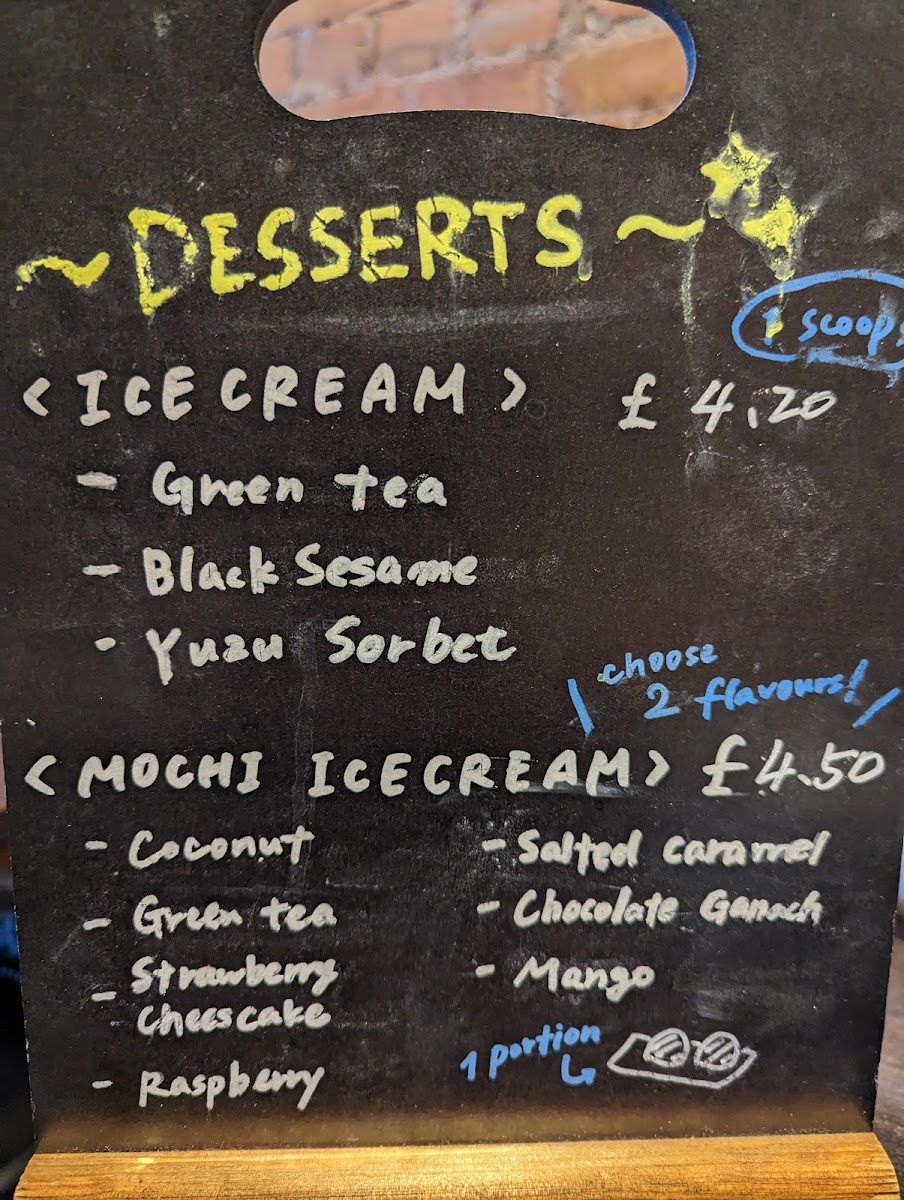 ~ DESSERTS ~
scoops
< ICE CREAM > £ 4.20
- Green tea
- Black Sesame
- Yuzu Sorbet
choose
2 flavours!
< MOCHI ICECREAM > £4.50
- Coconut
- Green tea
- Strawberry
Cheescake
- Raspberry
- Salted caramel
- Chocolate Ganach
- Mango
1 portion